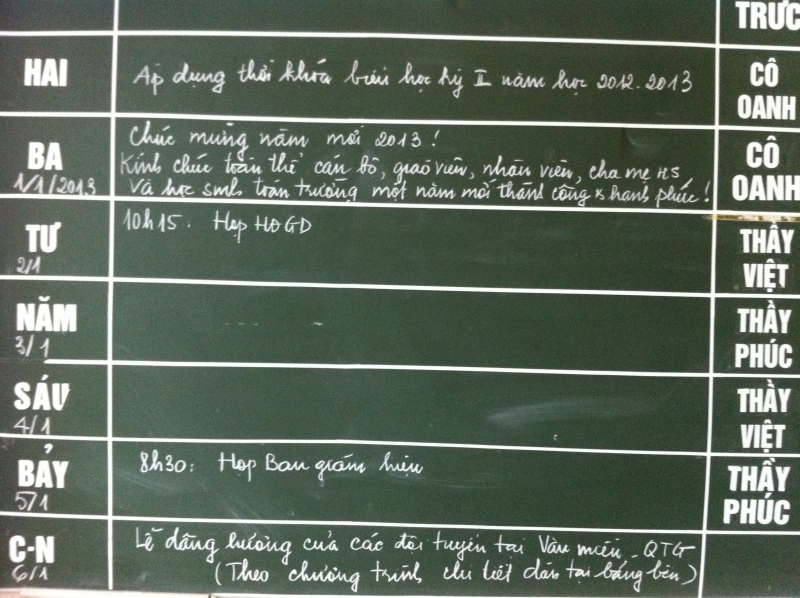 TRỰC
HAI
Áp dụng thời khóa biểu học kỳ II năm học 2012-2013
CÔ
OANH
BA
1/1/2013
Chúc mừng năm mới 2013!
Kính chúc toàn thể cán bộ, giáo viên, nhân viên, cha mẹ HS
và học sinh toàn trường một năm mới thành công & hạnh phúc!
CÔ
OANH
TƯ
2/1
10h15: Họp HĐGD
THẦY
VIỆT
NĂM
3/1
THẦY
PHÚC
SÁU
4/1
THẦY
VIỆT
BẢY
5/1
8h30: Họp Ban giám hiệu
THẦY
PHÚC
C-N
6/1
Lễ dâng hương của các đội tuyển tại Văn miếu - QTG
(Theo chương trình chi tiết dán tại bảng bên)